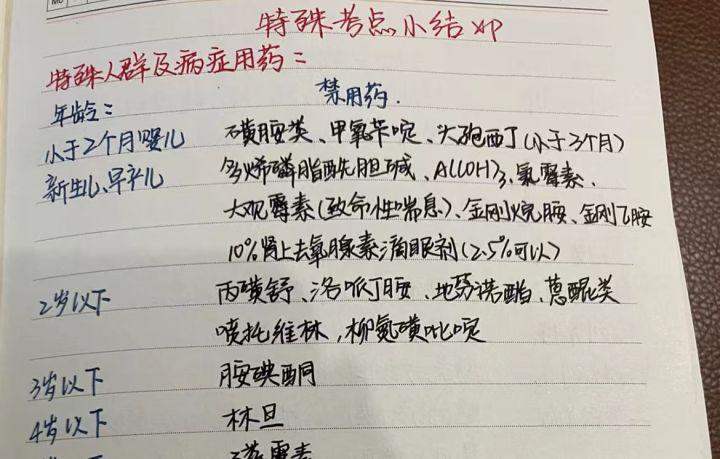 特殊考点小结
特殊人群及病症用药：
年龄： 禁用药.
小于2个月婴儿 磺胺类、甲氧苄啶、头孢西丁(小于3个月)
新生儿、早产儿 多烯磷脂酰胆碱、Al(OH)3、氯霉素、
大观霉素(致命性喘息)、金刚烷胺、金刚乙胺
10%肾上去氧腺素滴眼剂(2.5%可以)
2岁以下 丙磺舒、洛哌丁胺、地芬诺酯、蒽醌类
喷托维林,柳氮磺吡啶
3岁以下 胺碘酮
4岁以下 林旦